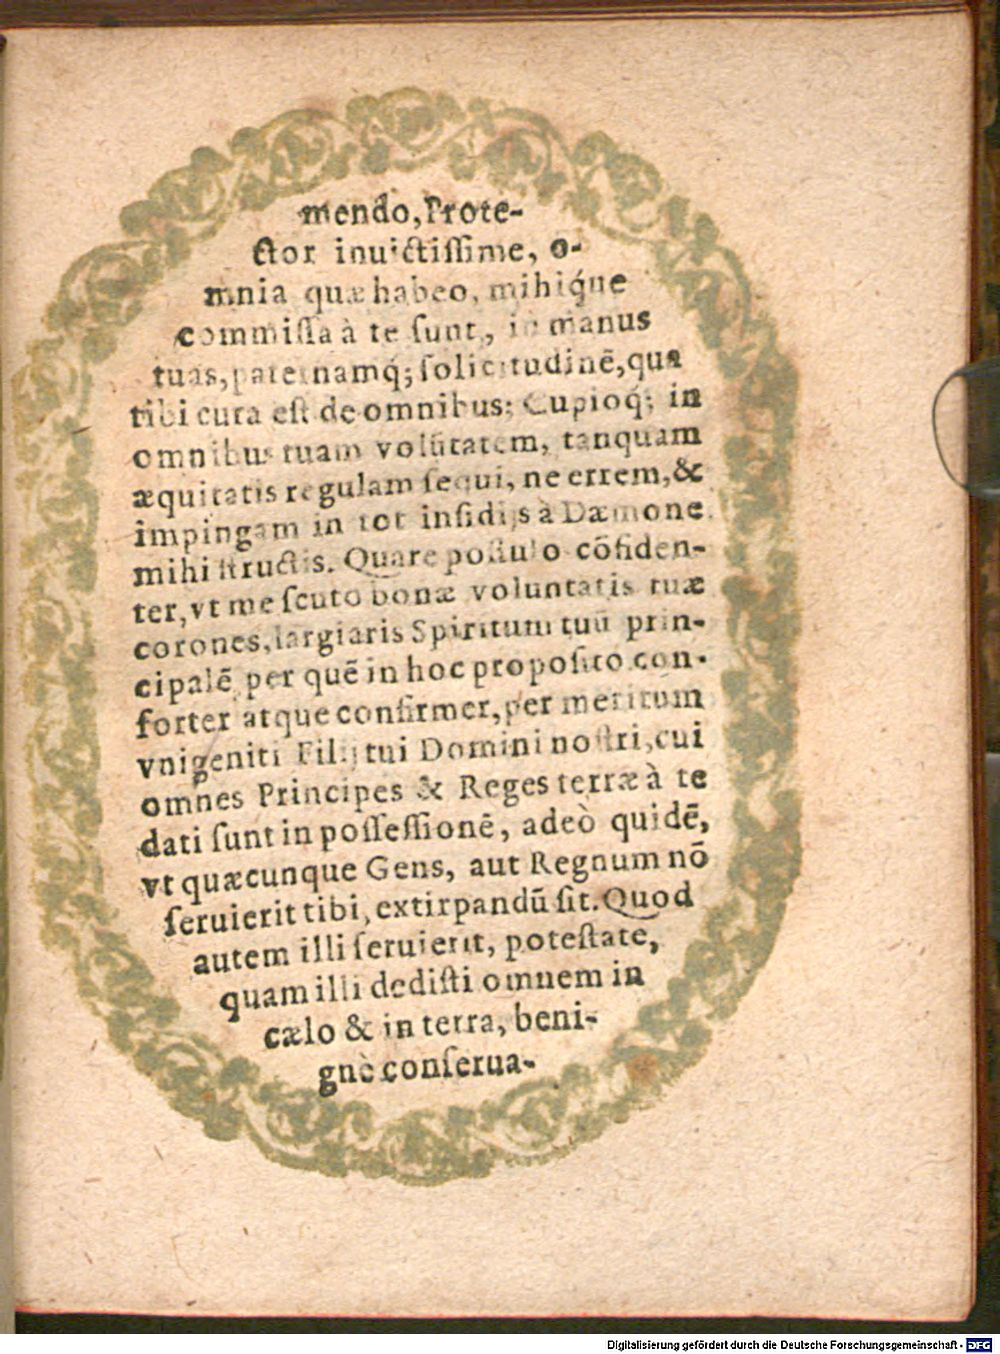 mendo, Prote-
ctor inuictissime, o-
mnia quæ habeo, mihiq́ue
commissa à te sunt, in manus
tuas, paternamq́; solicitudinẽ, qua
tibi cura est de omnibus; Cupioq́; in
omnibus tuam volũtatem, tanquam
æquitatis regulam sequi, ne errem, &
impingam in tot insidijs à Dæmone
mihi structis. Quare postulo cõfiden-
ter, vt me scuto bonæ voluntatis tuæ
corones, largiaris Spiritum tuũ prin-
cipalẽ per quẽ in hoc proposito con-
forter atque confirmer, per meritum
vnigeniti Filij tui Domini nostri, cui
omnes Principes & Reges terræ à te
dati sunt in possessionẽ, adeò quidẽ,
vt quæcunque Gens, aut Regnum nõ
seruierit tibi, extirpandũ sit. Quod
autem illi seruierit, potestate,
quam illi dedisti omnem in
cælo & in terra, beni-
gnè conserua-
Digitalisierung gefördert durch die Deutsche Forschungsgemeinschaft - DFG